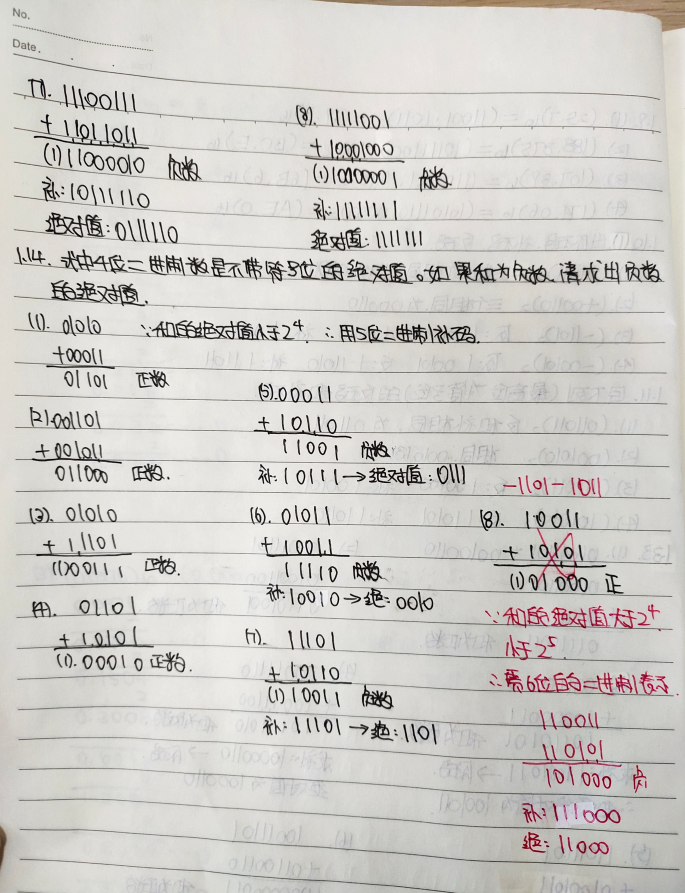 No.
Date.
(7). 11100111
+ 11011011
(1)11000010 负数
补:10111110
绝对值:0111110
(8). 1111001
+ 10001000
(1)1000001 负数
补:11111111
绝对值:1111111
1.14. 式中4位二进制数是不带符号位的绝对值。如果和为负数,请求出负数
的绝对值.
(1). 01010 ∵和的绝对值小于2⁴, ∴用5位二进制补码.
+00011
01101 正数
(2).001101
+001011
011000 正数.
(3). 01010
+ 11101
(1)00111 正数.
(4). 01101
+ 10101
(1).00010 正数.
(5).00011
+ 10110
11001 负数
补:10111→绝对值:0111
(6). 01011
+ 10011
11110 负数
补:10010→绝:0010
(7). 11101
+ 10110
(1) 10011 负数
补:11101→绝:1101
-1101-1011
(8). 10011
+ 10101
(1)01000 正
∵和的绝对值大于2⁴
小于2⁵.
∴需6位的二进制表示
110011
110101
101000 负
补:111000
绝:11000